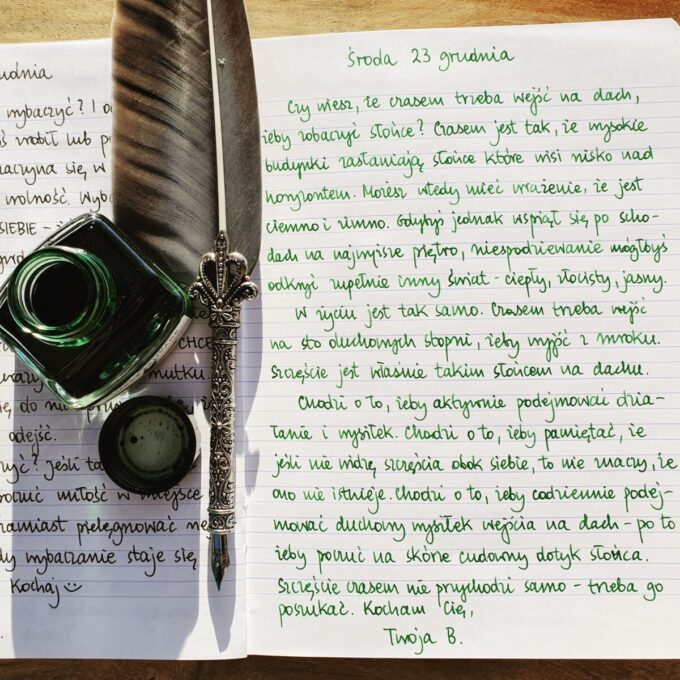 udnia
wybaczyć? I
zrobił lub
aczyna się w
wolność.
SIEBIE
CHCE
smutku.
odejść.
Jeśli
miłość w miejsce
zamiast pielęgnować
dy wybaczanie staje się
Kochaj
Środa 23 grudnia
Czy wiesz, że czasem trzeba wejść na dach,
żeby zobaczyć słońce? Czasem jest tak, że wysokie
budynki zasłaniają słońce które wisi nisko nad
horyzontem. Możesz wtedy mieć wrażenie, że jest
ciemno i zimno. Gdybyś jednak wspiął się po scho-
dach na najwyższe piętro, niespodziewanie mógłbyś
odkryć zupełnie inny świat - ciepły, złocisty, jasny.
W życiu jest tak samo. Czasem trzeba wejść
na sto duchowych stopni, żeby wyjść z mroku.
Szczęście jest właśnie takim słońcem na dachu.
Chodzi o to, żeby aktywnie podejmować dzia-
łanie i wysiłek. Chodzi o to, żeby pamiętać, że
jeśli nie widzę szczęścia obok siebie, to nie znaczy, że
ono nie istnieje. Chodzi o to, żeby codziennie podej-
mować duchowy wysiłek wejścia na dach - po to
żeby poczuć na skórze cudowny dotyk słońca.
Szczęście czasem nie przychodzi samo - trzeba go
poszukać. Kocham Cię,
Twoja B.